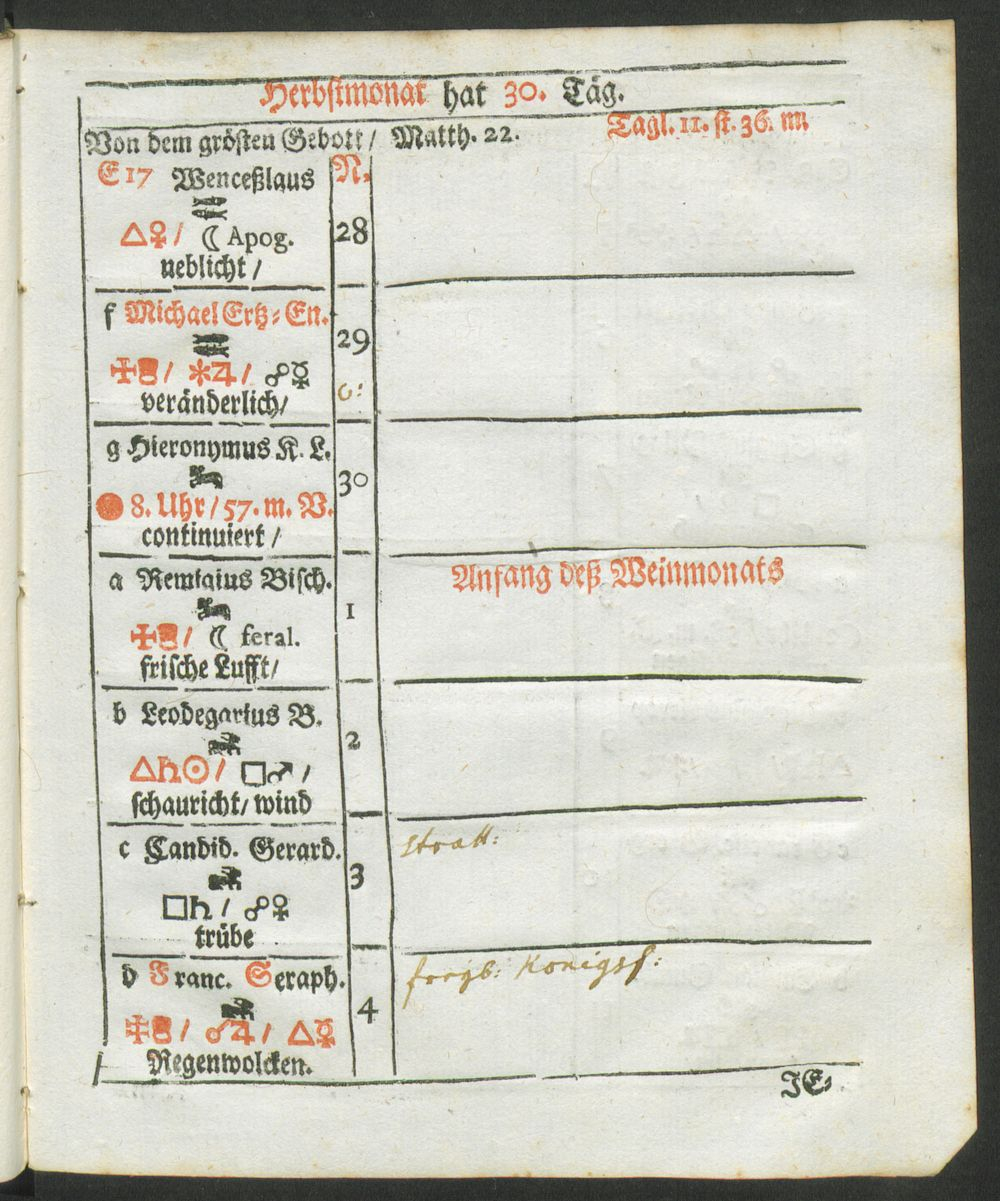 Herbstmonat hat 30. Täg.
Von dem grösten Gebott / Matth. 22.
Tagl. 11. st. 36. m
E 17 Wenceßlaus
N.
△♀ / ☾ Apog.
28
neblicht /
f Michael Ertz-En.
29
✠ / ✻♃ / ☍☿
veränderlich/
g Hieronymus K. L.
30
● 8. Uhr / 57. m. V.
continuiert /
Anfang deß Weinmonats
a Remigius Bisch.
1
✠ / ☾ feral.
frische Lufft/
b Leodegarius B.
2
△♄☉ / □♂ /
schauricht/ wind
c Candid. Gerard.
3
□♄ / ☍♀
trübe
d Franc. Seraph.
4
✠ / ☌♃ / △☿
Regenwolcken.
JE-